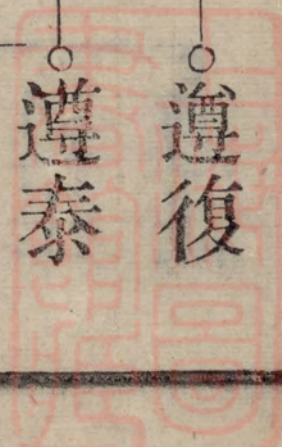 遵復
遵泰